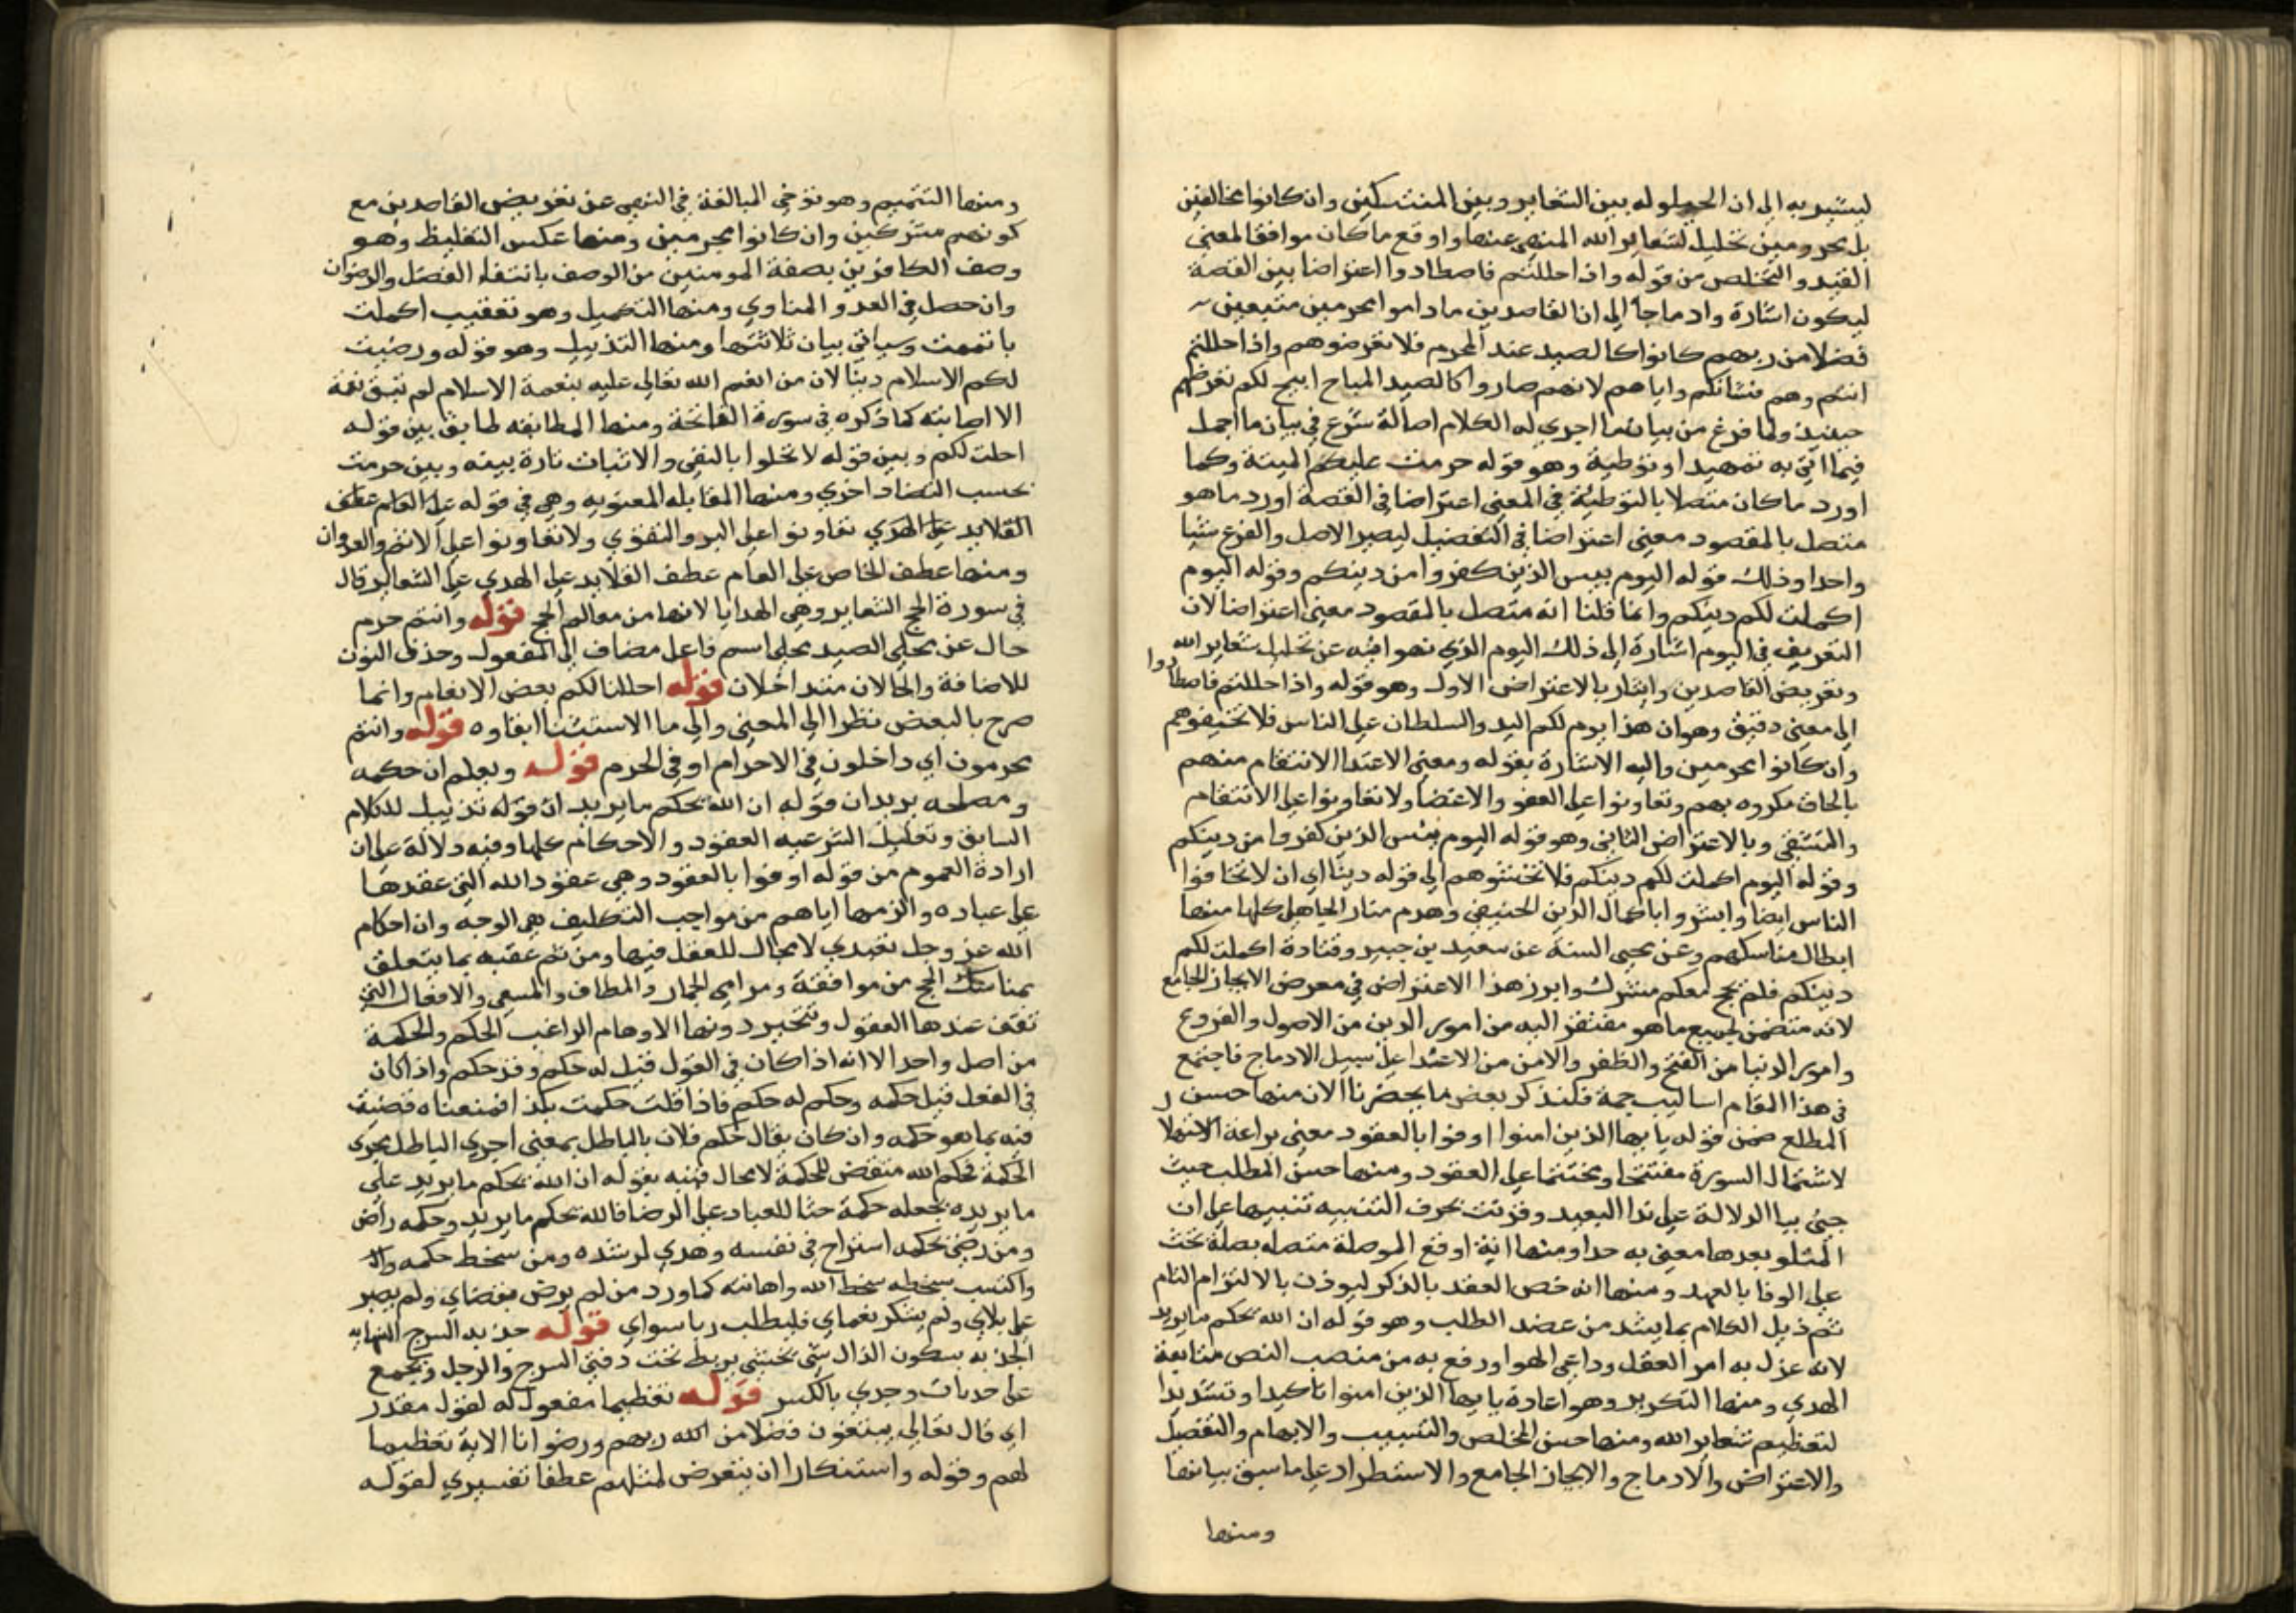 ليشير به الى ان الحيلولة بين الشعاير وبين المتنسكين وان كانوا مخالفين
بل مجرومين تحليل لشعاير الله المنهي عنها واوقع ما كان موافقا لمعني
القيد والتخلص من قوله واذا حللتم فاصطادوا اعتراضا بين القصة
ليكون اشارة وادماجا الى ان القاصدين ما داموا محرمين متبعين
فضلا من ربهم كانوا كالصيد عند المحرم فلا تعرضوهم واذا حللتم
انتم وهم فشانكم واياهم لانهم صاروا كالصيد المباح ابيح لكم تعرضهم
حينيذ ولما فرغ من بيان ما اجري له الكلام اصالة شرع في بيان ما اجمل
فيما اتي به تمهيدا وتوطية وهو قوله حرمت عليكم الميتة وكما
اورد ما كان متصلا بالتوطئة في المعني اعتراضا في القصة اورد ما هو
متصل بالمقصود معني اعتراضا في التفصيل ليصير الاصل والفرع شيا
واحدا وذلك قوله اليوم ييس الذين كفروا من دينكم وقوله اليوم
اكملت لكم دينكم وانما قلنا انه متصل بالمقصود معني اعتراضا لان
التعريف في اليوم اشارة الى ذلك اليوم الذي نهوا فيه عن تحليل شعاير الله
وتعريض القاصدين واشار بالاعتراض الاول وهو قوله واذا حللتم فاصطادوا
الى معني دقيق وهو ان هذا يوم لكم اليد والسلطان على الناس فلا تخيفوهم
وان كانوا مجرمين واليه الاشارة بقوله ومعني الاعتدا الانتقام منهم
بالحاق مكروه بهم وتعاونوا على العفو والاغضا ولا تعاونوا على الانتقام
والتشفي وبالاعتراض الثاني وهو قوله اليوم يئس الذين كفروا من دينكم
وقوله اليوم اكملت لكم دينكم فلا تخشوهم الى قوله دينا اي ان لا تخافوا
الناس ايضا وابشروا باكمال الدين الحنيفي وهدم منار الجاهلي كلها منها
ابطال مناسكهم وعن محيي السنة عن سعيد بن جبير وقتادة اكملت لكم
دينكم فلم يحج معكم مشرك وابرز هذا الاعتراض في معرض الايجاز الجامع
لانه متضمن لجميع ما هو مفتقر اليه من امور الدين من الاصول والفروع
وامور الدنيا من الفتح والظفر والامن من الاعتدا على سبيل الادماج فاجتمع
في هذا المقام اساليب جمة فلنذكر بعض ما يحضرنا الان منها حسن
المطلع ضمن قوله يا يها الذين امنوا اوفوا بالعقود معني براعة الاستهلال
لاشتمال السورة مفتتحا ومختتما على العقود ومنها حسن المطلب حيث
جيئ بيا الدلالة على ندا البعيد وقرنت بحرف التنبيه تنبيها على ان
المتلو بعدها معني به جدا ومنها انه اوقع الموصلة متصله بصلة تحث
على الوفا بالعهد ومنها انه خص العقد بالذكر ليوذن بالالتزام التام
ثم ذيل الكلام بما يشد من عضد الطلب وهو قوله ان الله يحكم ما يريد
لانه عزل به امر العقل وداعي الهوا ورفع به من منصب النص متابعة
الهدي ومنها التكرير وهو اعادة يا يها الذين امنوا تاكيدا وتشديدا
لتعظيم شعاير الله ومنها حسن التخلص والتسبيب والابهام والتفصيل
والاعتراض والادماج والايجاز الجامع والاستطراد على ما سبق بيانها
ومنها
ومنها التتميم وهو توخي المبالغة في النهي عن تعريض القاصدين مع
كونهم مشركين وان كانوا مجرمين ومنها عكس التغليظ وهو
وصف الكافرين بصفة المومنين من الوصف بابتغاء الفضل والرضوان
وان حصل في العدو المناوي ومنها التكميل وهو تعقيب اكملت
باتممت وسياتي بيان ثلاثتها ومنها التذييل وهو قوله ورضيت
لكم الاسلام دينا لان من انعم الله تعالى عليه بنعمة الاسلام لم تبق نعمة
الا اصابته كما ذكره في سورة الفاتحة ومنها المطابقه طابق بين قوله
احلت لكم وبين قوله لا تحلوا بالنفي والاثبات تارة بينه وبين حرمت
بحسب التضاد اخري ومنها المقابله المعنوية وهي في قوله على العام عطف
القلايد على الهدي تعاونوا على البر والتقوي ولا تعاونوا على الاثم والعدوان
ومنها عطف الخاص على العام عطف القلايد على الهدي على الشعاير قال
في سورة الحج الشعاير وهي الهدايا لانها من معالم الحج قوله وانتم حرم
حال عن محلي الصيد محلي اسم فاعل مضاف الى المفعول وحذف النون
للاضافة والحالان متداخلان قوله احللنا لكم بعض الانعام وانما
صرح بالبعض نظرا الى المعني والى ما الاستثنا ابقاوه قوله وانتم
محرمون اي داخلون في الاحرام او في الحرم قوله ويعلم ان حكمه
ومصلحه يريد ان قوله ان الله يحكم ما يريد ان قوله تذييل للكلام
السابق وتعليل لشرعيه العقود والاحكام كلها وفيه دلالة على ان
ارادة العموم من قوله اوفوا بالعقود وهي عقود الله التي عقدها
على عباده والزمها اياهم من مواجب التكليف هي الوجه وان احكام
الله عز وجل تعبدي لا مجال للعقل فيها ومن ثم عقبه بما يتعلق
بمناسك الحج من موافقة ومرامي الجمار والمطاف والمسعي والافعال التي
تقف عندها العقول وتتحير دونها الاوهام الراغب الحكم والحكمة
من اصل واحد الا انه اذا كان في القول قيل له حكم وقد حكم واذا كان
في الفعل قيل حكمه وحكم له حكم فاذا قلت حكمت بكذا فمعناه قضيت
فيه بما هو حكمه وان كان يقال حكم فلان بالباطل بمعني اجري الباطل مجري
الحكمة فحكم الله متقض للحكمة لا محال فنبه بقوله ان الله يحكم ما يريد على
ما يريده يجعله حكمة حثا للعباد على الرضا فالله يحكم ما يريد وحكمه راض
ومن رضي بحكمه استراح في نفسه وهدي لرشده ومن سخط حكمه
واكتسب بسخطه سخط الله واهانته كما ورد من لم يرض بقضاي ولم يصبر
على بلاي ولم يشكر نعماي فليطلب ربا سواي قوله جديه السرج النهايه
الجديه بسكون الدال شي يحشي يربط تحت دفتي السرج والرحل ويجمع
على جديات وجدي بالكسر قوله تعظيما مفعول له لقول مقدر
اي قال تعالى يبتغون فضلا من الله ربهم ورضوانا الاية تعظيما
لهم وقوله واستنكارا ان يتعرض لمثلهم عطفا تفسيري لقوله